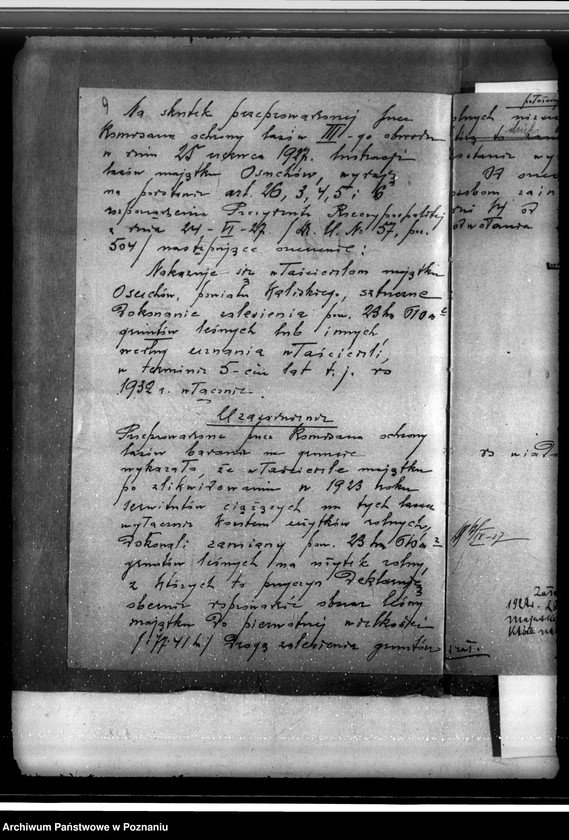 9
Na skutek przeprowadzonej przez
Komisarza ochrony lasów III-go obwodu
w dniu 25 czerwca 1927. lustracji
lasów majątku Osuchów,
na podstawie art. 26, 3, 4, 5 i 6
rozporządzenia Prezydenta Rzeczypospolitej
z dnia 24-VI-27. /Dz. U. N. 57, poz.
504/ następujące orzeczenie:
Nakazuje się właścicielom majątku
Osuchów, powiatu Kaliskiego, sztuczne
dokonanie zalesienia pow. 23 ha
gruntów leśnych lub innych,
według uznania właścicieli,
w terminie 5-ciu lat t. j. do
1932 r. włącznie.
Uzasadnienie
Przeprowadzone przez Komisarza ochrony
lasów badania na gruncie
wykazało, że właściciele majątku
po zlikwidowaniu w 1923 roku
serwitutów ciążących na tych lasach
wyłącznie kosztem użytków rolnych,
dokonali zamiany pow. 23 ha
gruntów leśnych na użytek rolny,
z których to przyczyn deklarują
obecnie doprowadzić obszar leśny
majątku do pierwotnej wielkości
drogą zalesienia gruntów
położony
olnych
dnia 14 od
do wiado
1927 r.
majątk
Archiwum Państwowe w Poznaniu